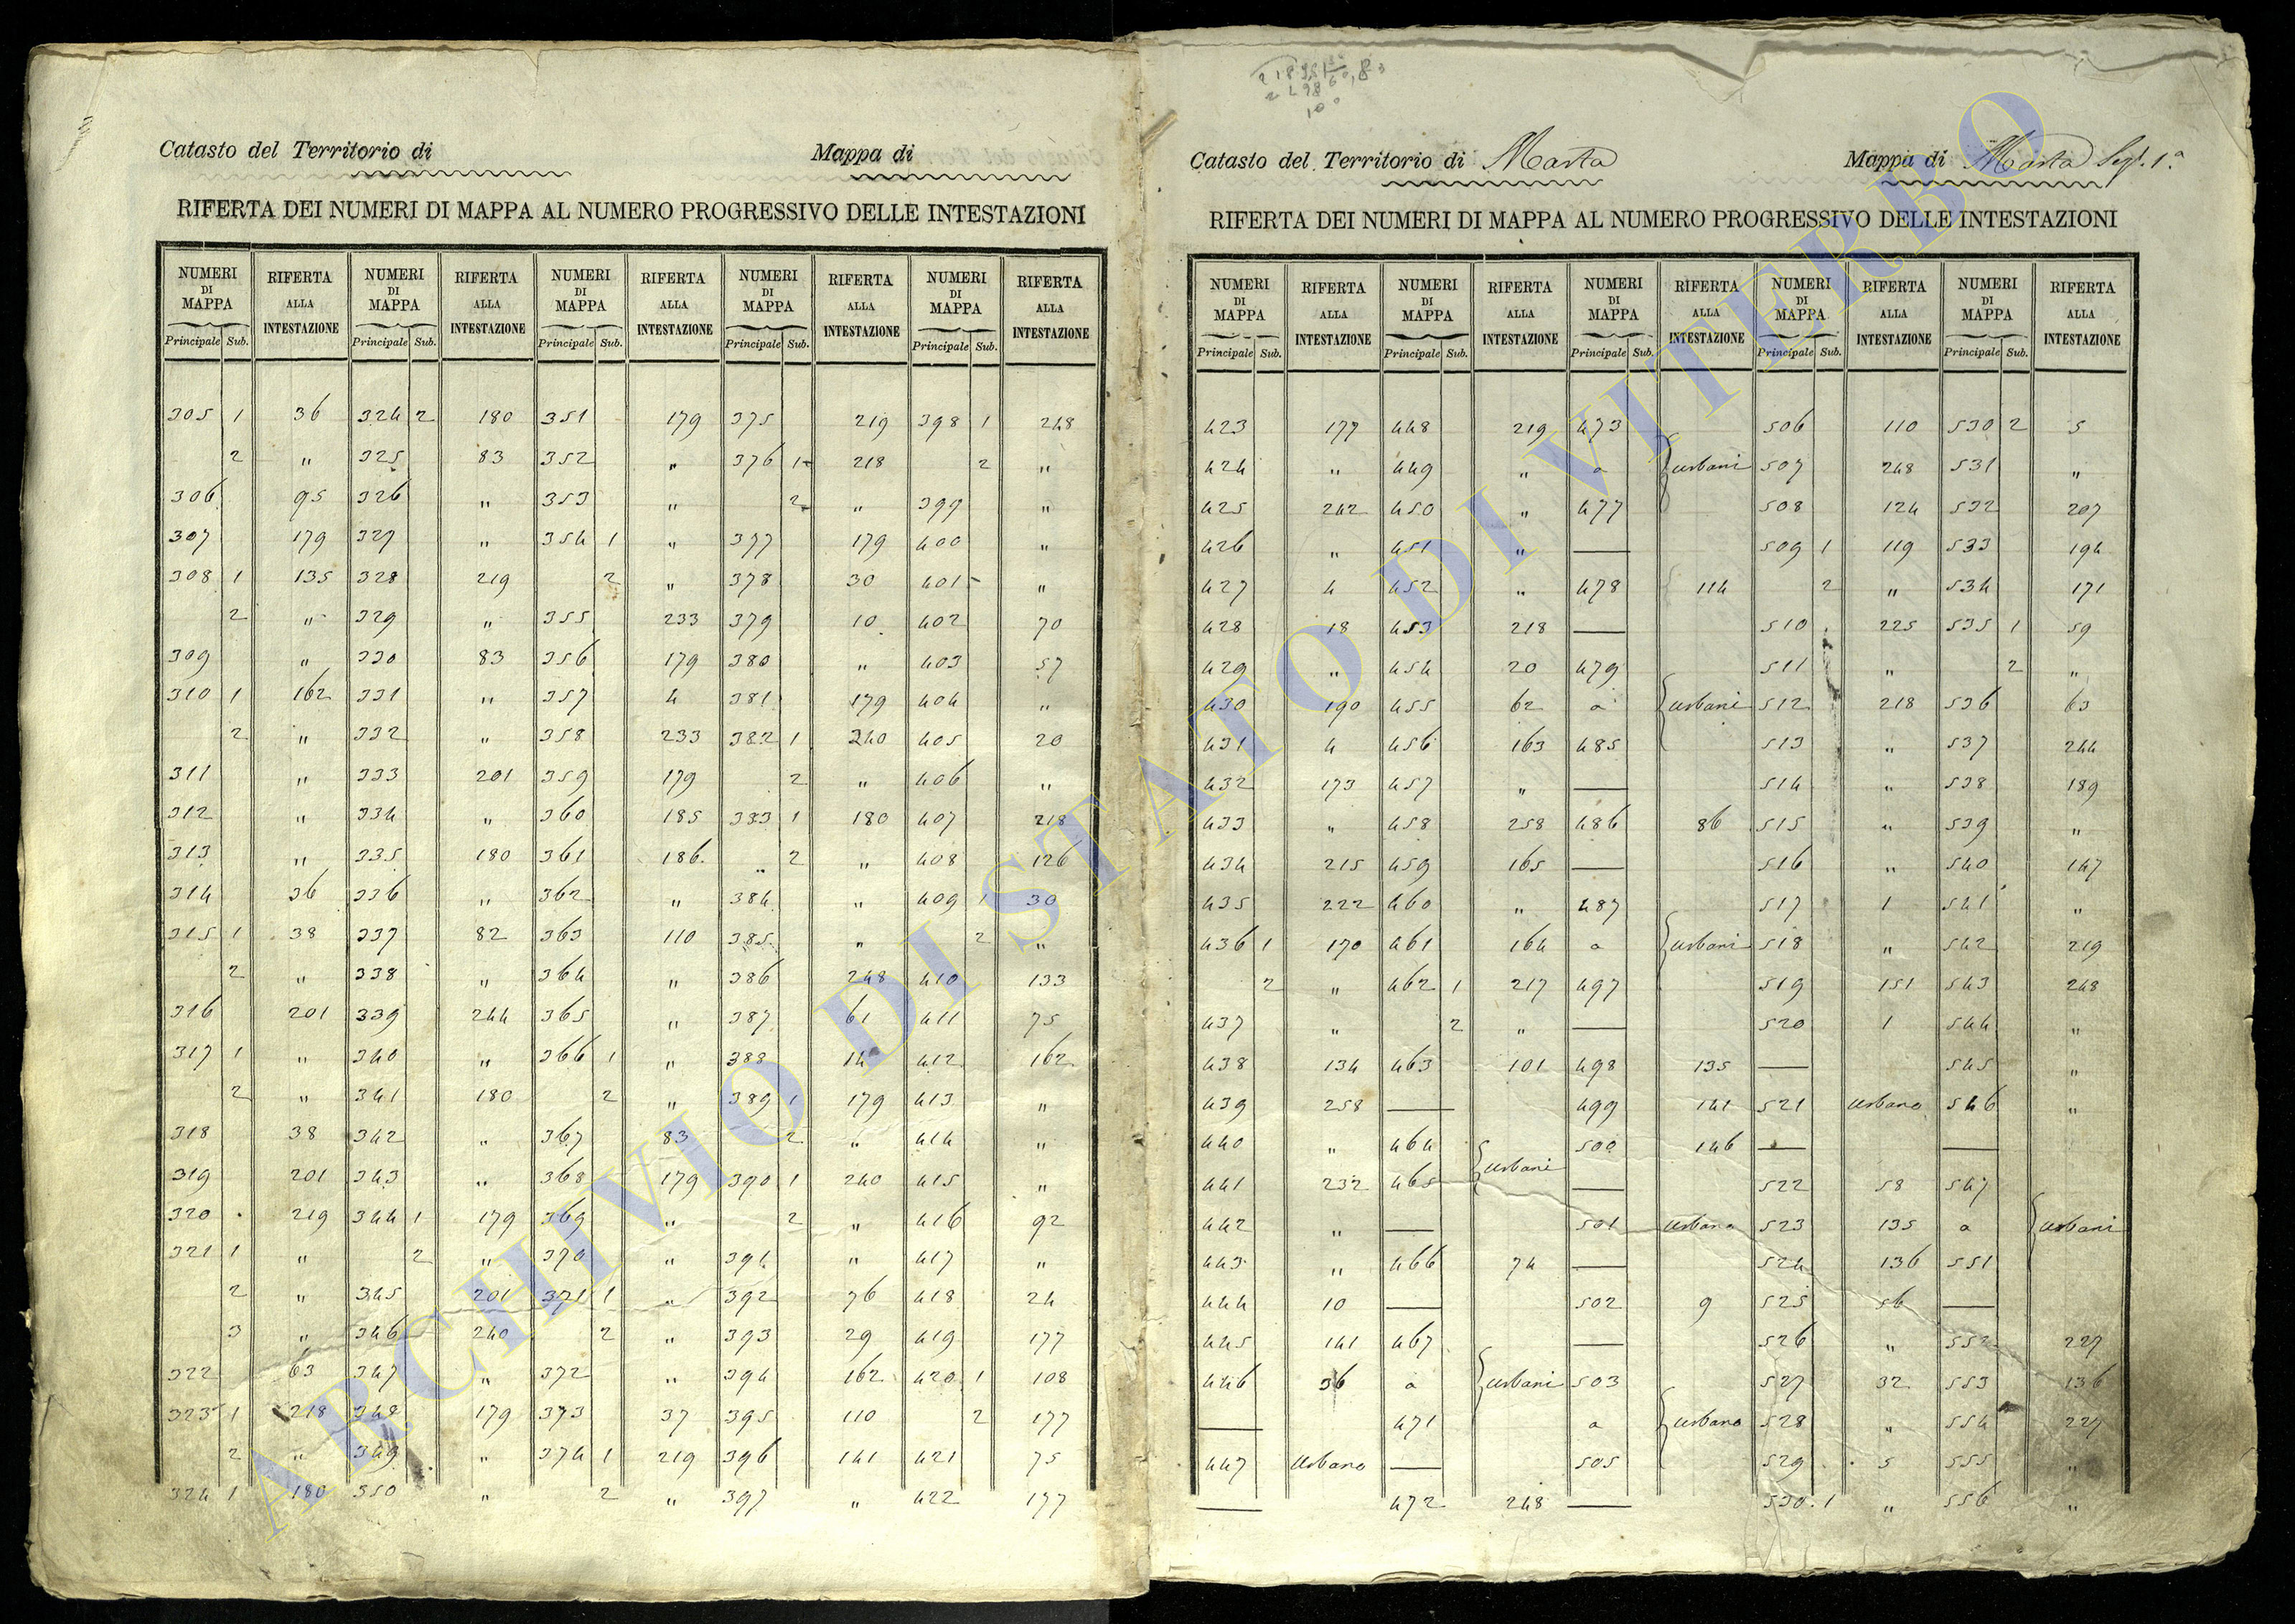 Catasto del Territorio di Mappa di
RIFERTA DEI NUMERI DI MAPPA AL NUMERO PROGRESSIVO DELLE INTESTAZIONI
NUMERI DI MAPPA RIFERTA ALLA INTESTAZIONE NUMERI DI MAPPA RIFERTA ALLA INTESTAZIONE NUMERI DI MAPPA RIFERTA ALLA INTESTAZIONE NUMERI DI MAPPA RIFERTA ALLA INTESTAZIONE NUMERI DI MAPPA RIFERTA ALLA INTESTAZIONE
Principale Sub. Principale Sub. Principale Sub. Principale Sub. Principale Sub.
305 1 36 324 2 180 351 179 375 219 398 1 248
2 " 325 83 352 " 376 1 218 2 "
306 95 326 " 353 " 2 " 399 "
307 179 327 " 354 1 " 377 179 400 "
308 1 135 328 219 2 " 378 30 401 "
2 " 329 " 355 233 379 10 402 70
309 " 330 83 356 179 380 " 403 57
310 1 162 331 " 357 4 381 179 404 "
2 " 332 " 358 233 382 1 240 405 20
311 " 333 201 359 179 2 " 406 "
312 " 334 " 360 185 383 1 180 407 218
313 " 335 180 361 186 " 2 " 408 126
314 36 336 " 362 " 384 " 409 1 30
315 1 38 337 82 363 110 385 " 2 "
2 " 338 " 364 " 386 248 410 133
316 201 339 244 365 " 387 61 411 75
317 1 " 340 " 366 1 " 388 14 412 162
2 " 341 180 2 " 389 1 179 413 "
318 38 342 " 367 83 2 " 414 "
319 201 343 " 368 179 390 1 240 415 "
320 219 344 1 179 369 " 2 " 416 92
321 1 " 2 " 370 " 391 " 417 "
2 " 345 201 371 1 " 392 76 418 24
3 " 346 240 2 " 393 29 419 177
322 63 347 " 372 " 394 162 420 1 108
323 1 218 348 179 373 37 395 110 2 177
2 " 349 " 374 1 219 396 141 421 75
324 1 180 350 " 2 " 397 " 422 177
Catasto del Territorio di Marta Mappa di Marta Sez. 1.a
RIFERTA DEI NUMERI DI MAPPA AL NUMERO PROGRESSIVO DELLE INTESTAZIONI
NUMERI DI MAPPA RIFERTA ALLA INTESTAZIONE NUMERI DI MAPPA RIFERTA ALLA INTESTAZIONE NUMERI DI MAPPA RIFERTA ALLA INTESTAZIONE NUMERI DI MAPPA RIFERTA ALLA INTESTAZIONE NUMERI DI MAPPA RIFERTA ALLA INTESTAZIONE
Principale Sub. Principale Sub. Principale Sub. Principale Sub. Principale Sub.
423 177 448 219 473 506 110 530 2 5
424 " 449 " a urbani 507 248 531 "
425 242 450 " 477 508 124 532 207
426 " 451 " — 509 1 119 533 194
427 4 452 " 478 114 2 " 534 171
428 18 453 218 — 510 225 535 1 59
429 " 454 20 479 511 " 2 "
430 190 455 62 a urbani 512 218 536 63
431 4 456 163 485 513 " 537 244
432 173 457 " — 514 " 538 189
433 " 458 258 486 86 515 " 539 "
434 215 459 165 — 516 " 540 147
435 222 460 " 487 517 1 541 "
436 1 170 461 164 a urbani 518 " 542 219
2 " 462 1 217 497 519 151 543 248
437 " 2 " — 520 1 544 "
438 134 463 101 498 135 — 545 "
439 258 — 499 141 521 urbano 546 "
440 " 464 urbani 500 146 — —
441 232 465 — 522 58 547
442 " — 501 urbano 523 135 a urbani
443 " 466 74 — 524 136 551
444 10 — 502 9 525 56 —
445 141 467 — 526 " 552 227
446 36 a urbani 503 527 32 553 136
— 471 a urbano 528 " 554 227
447 Urbano — 505 529 5 555 "
— 472 248 — 530 1 " 556 "
ARCHIVIO DI STATO DI VITERBO